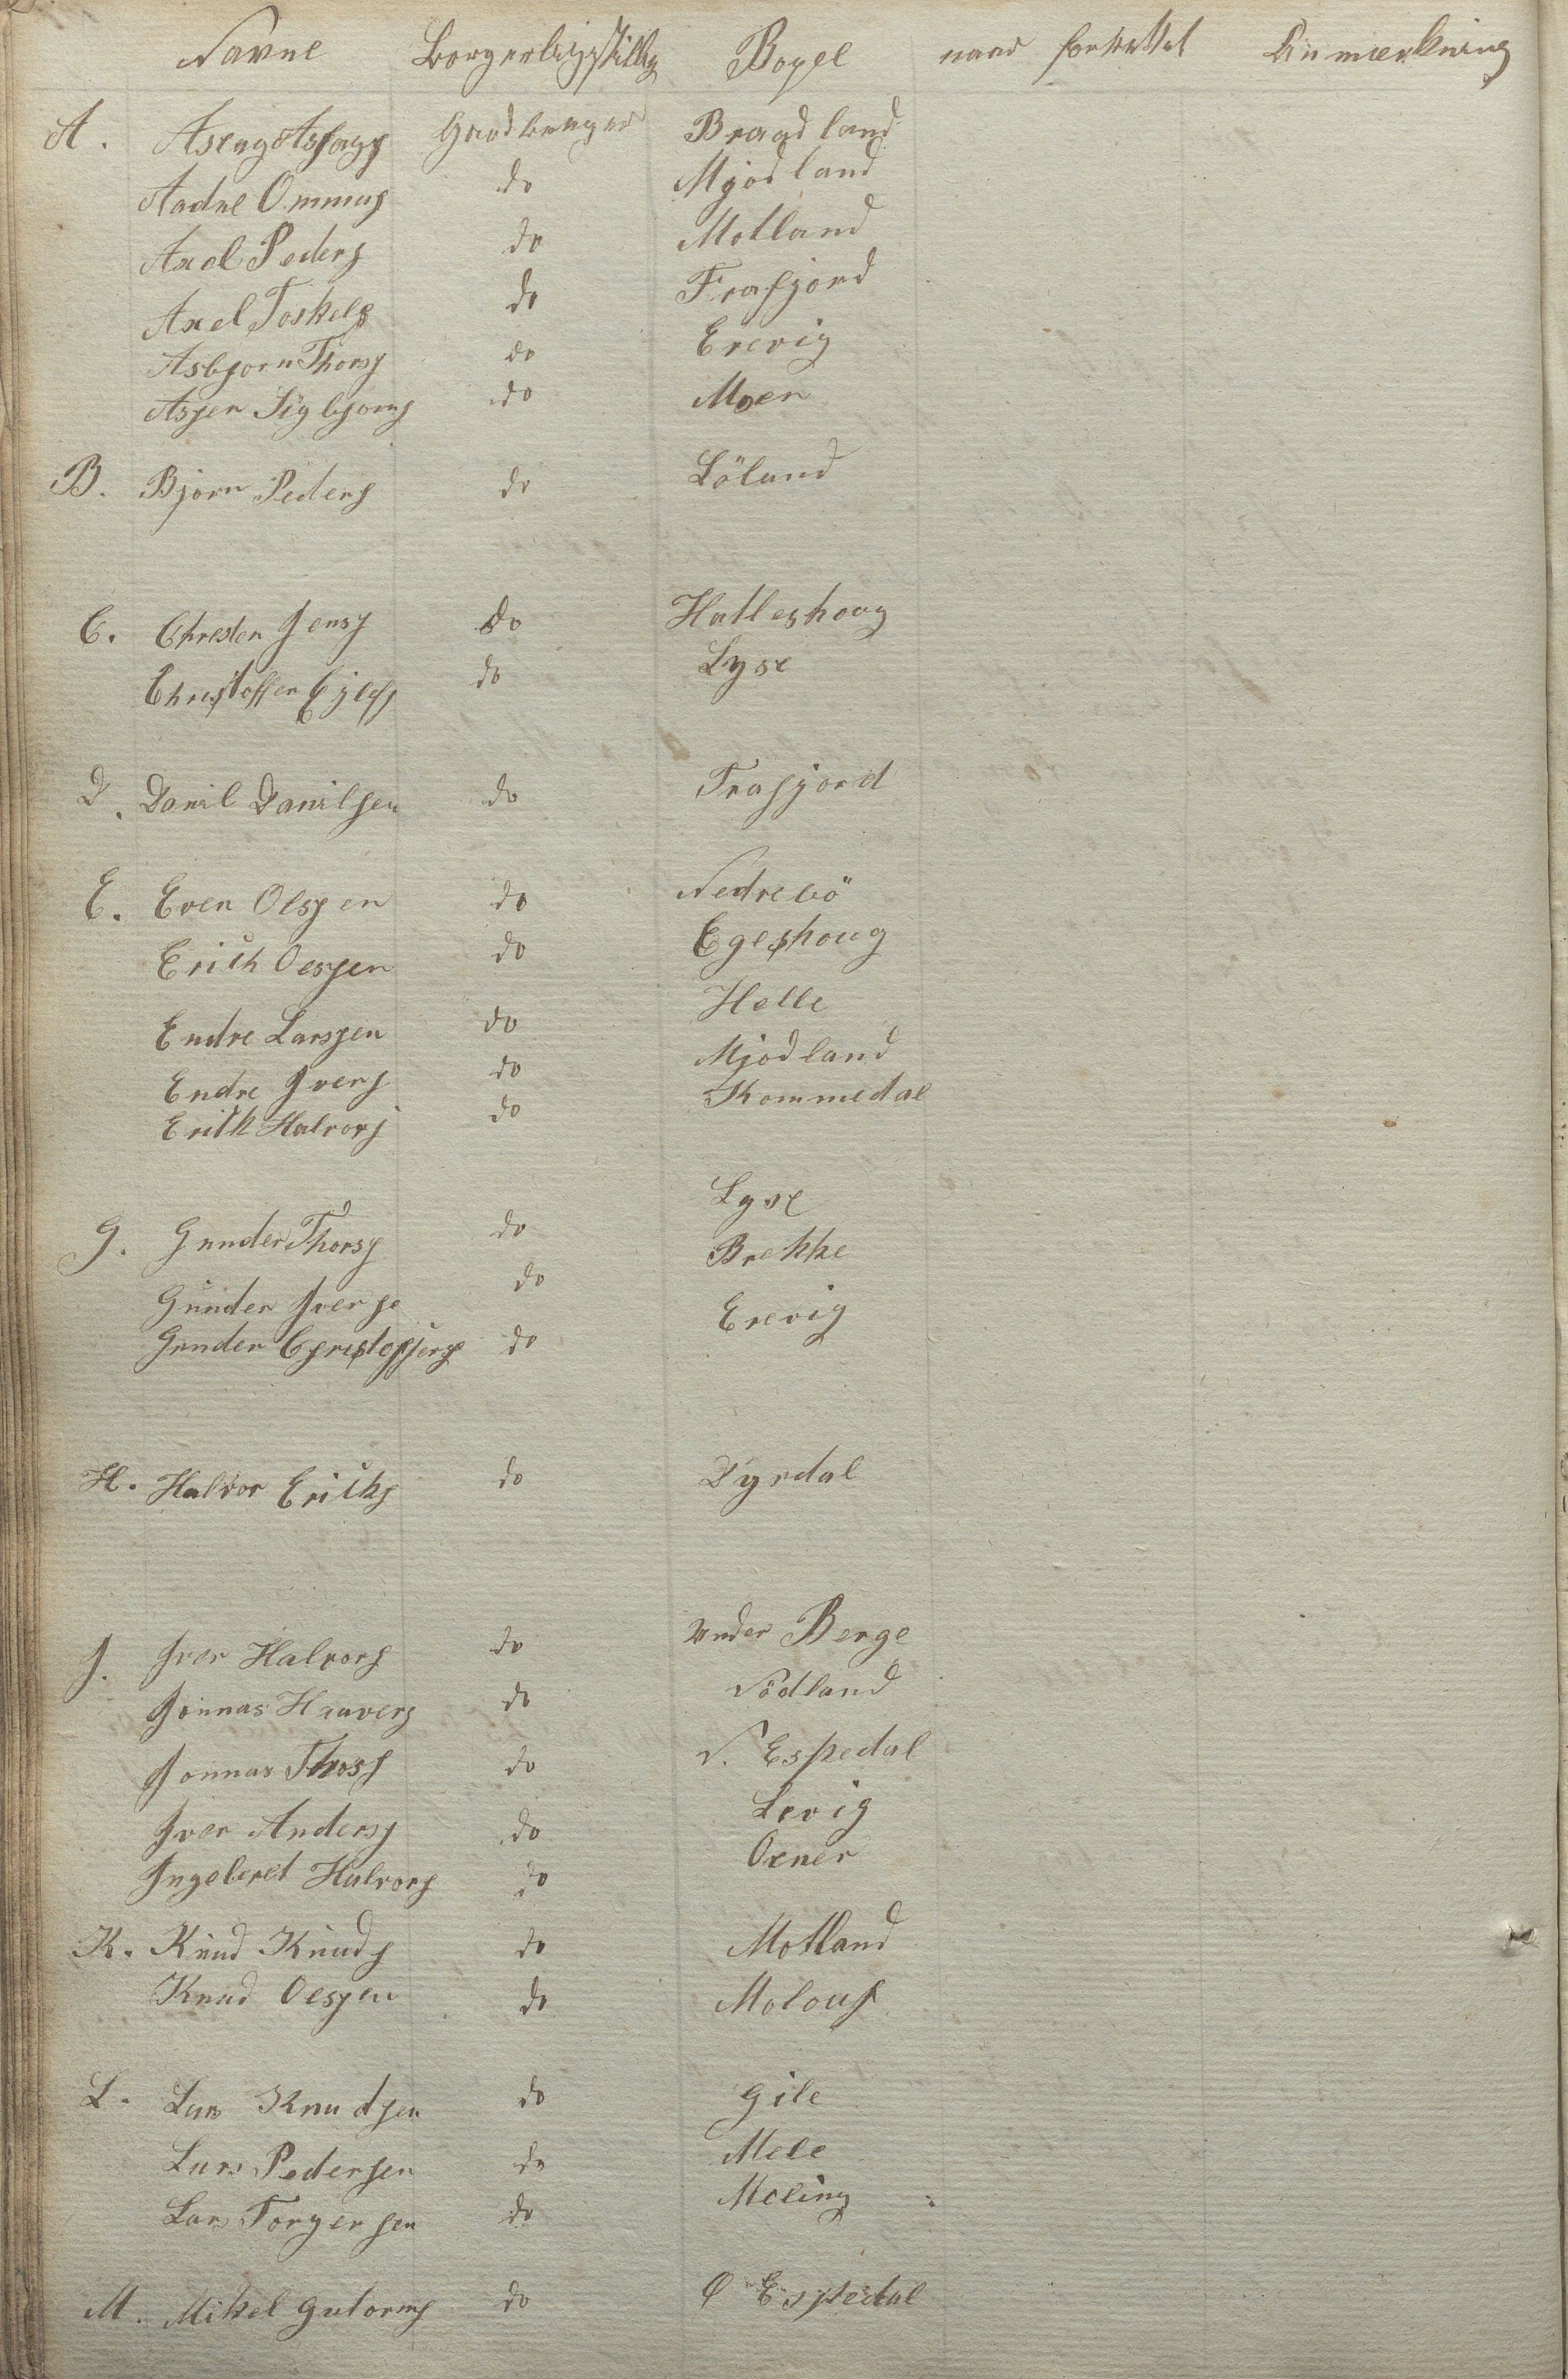 Navne Borgerligstilling Bopel naar fortrættet Anmærkning
A. Aslag Aslags Gaardbruger Braadland
Aadne Ommus do Mjodland
Axel Peders do Motland
Axel Toskels do Frafjord
Asbjorn Thors do Erevig
Asjer Sigbjorns do Moen
B. Bjorn Peders do Löland
C. Chresten Jens do Hatleshoug
Christoffer Ejlefs do Lyse
D. Danil Danilsen do Frafjord
E. Even Olsen do Nedrebö
Erich Oesen do Egeshoug
Endre Larsen do Helle
Endre Ivers do Mjodland
Erick Halvors do Kommedal
G. Gunder Thors do Lyse
Gunder Iverse do Brekke
Gunder Christophers do Erevig
H. Halvor Ericks do Dyrdal
J. Iver Halvors do under Berge
Jonnas Haavers do Nödland
Jonnas Thos do N. Espedal
Iver Anders do Levig
Ingebret Halvors do Oxner
K. Knud Knuds do Motland
Knud Oesen do Molouf
L. Lars Knudsen do Gile
Lars Pedersen do Mele
Lars Torgersen do Meling
M. Mikel Gutorms do Ø Espedal